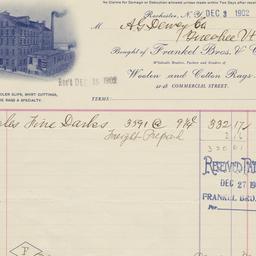 No Claims for Damage or Deduction allowed unless made within Ten Days after receipt
Rochester, N. Y. DEC 3 1902
M A. G. Dewey Co
Quechee Vt
Bought of Frankel Bros. & C
Wholesale Dealers, Packers and Graders of
Woolen and Cotton Rags
COMMERCIAL STREET.
Rec'd DEC 1902
TAILOR CLIPS, SHIRT CUTTINGS,
RAGS A SPECIALTY.
TERMS
Fine Darks 3591 @ 9¼ 332 17
Freight Prepaid
RECEIVED PAY
DEC 27 19
FRANKEL BRO
Per